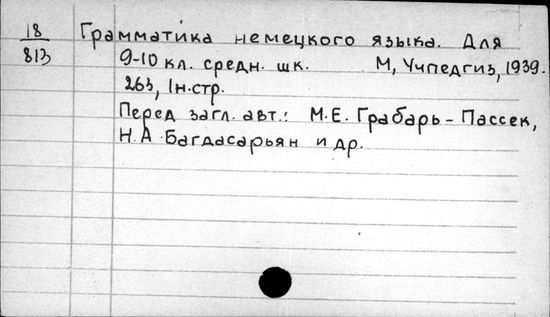 18
813
Грамматика немецкого языка. Для
9-10 кл. средн. шк. М, Учпедгиз, 1939.
263, 1н.стр.
Перед загл. авт.: М.Е. Грабарь-Пассек,
Н.А Багдасарьян и др.